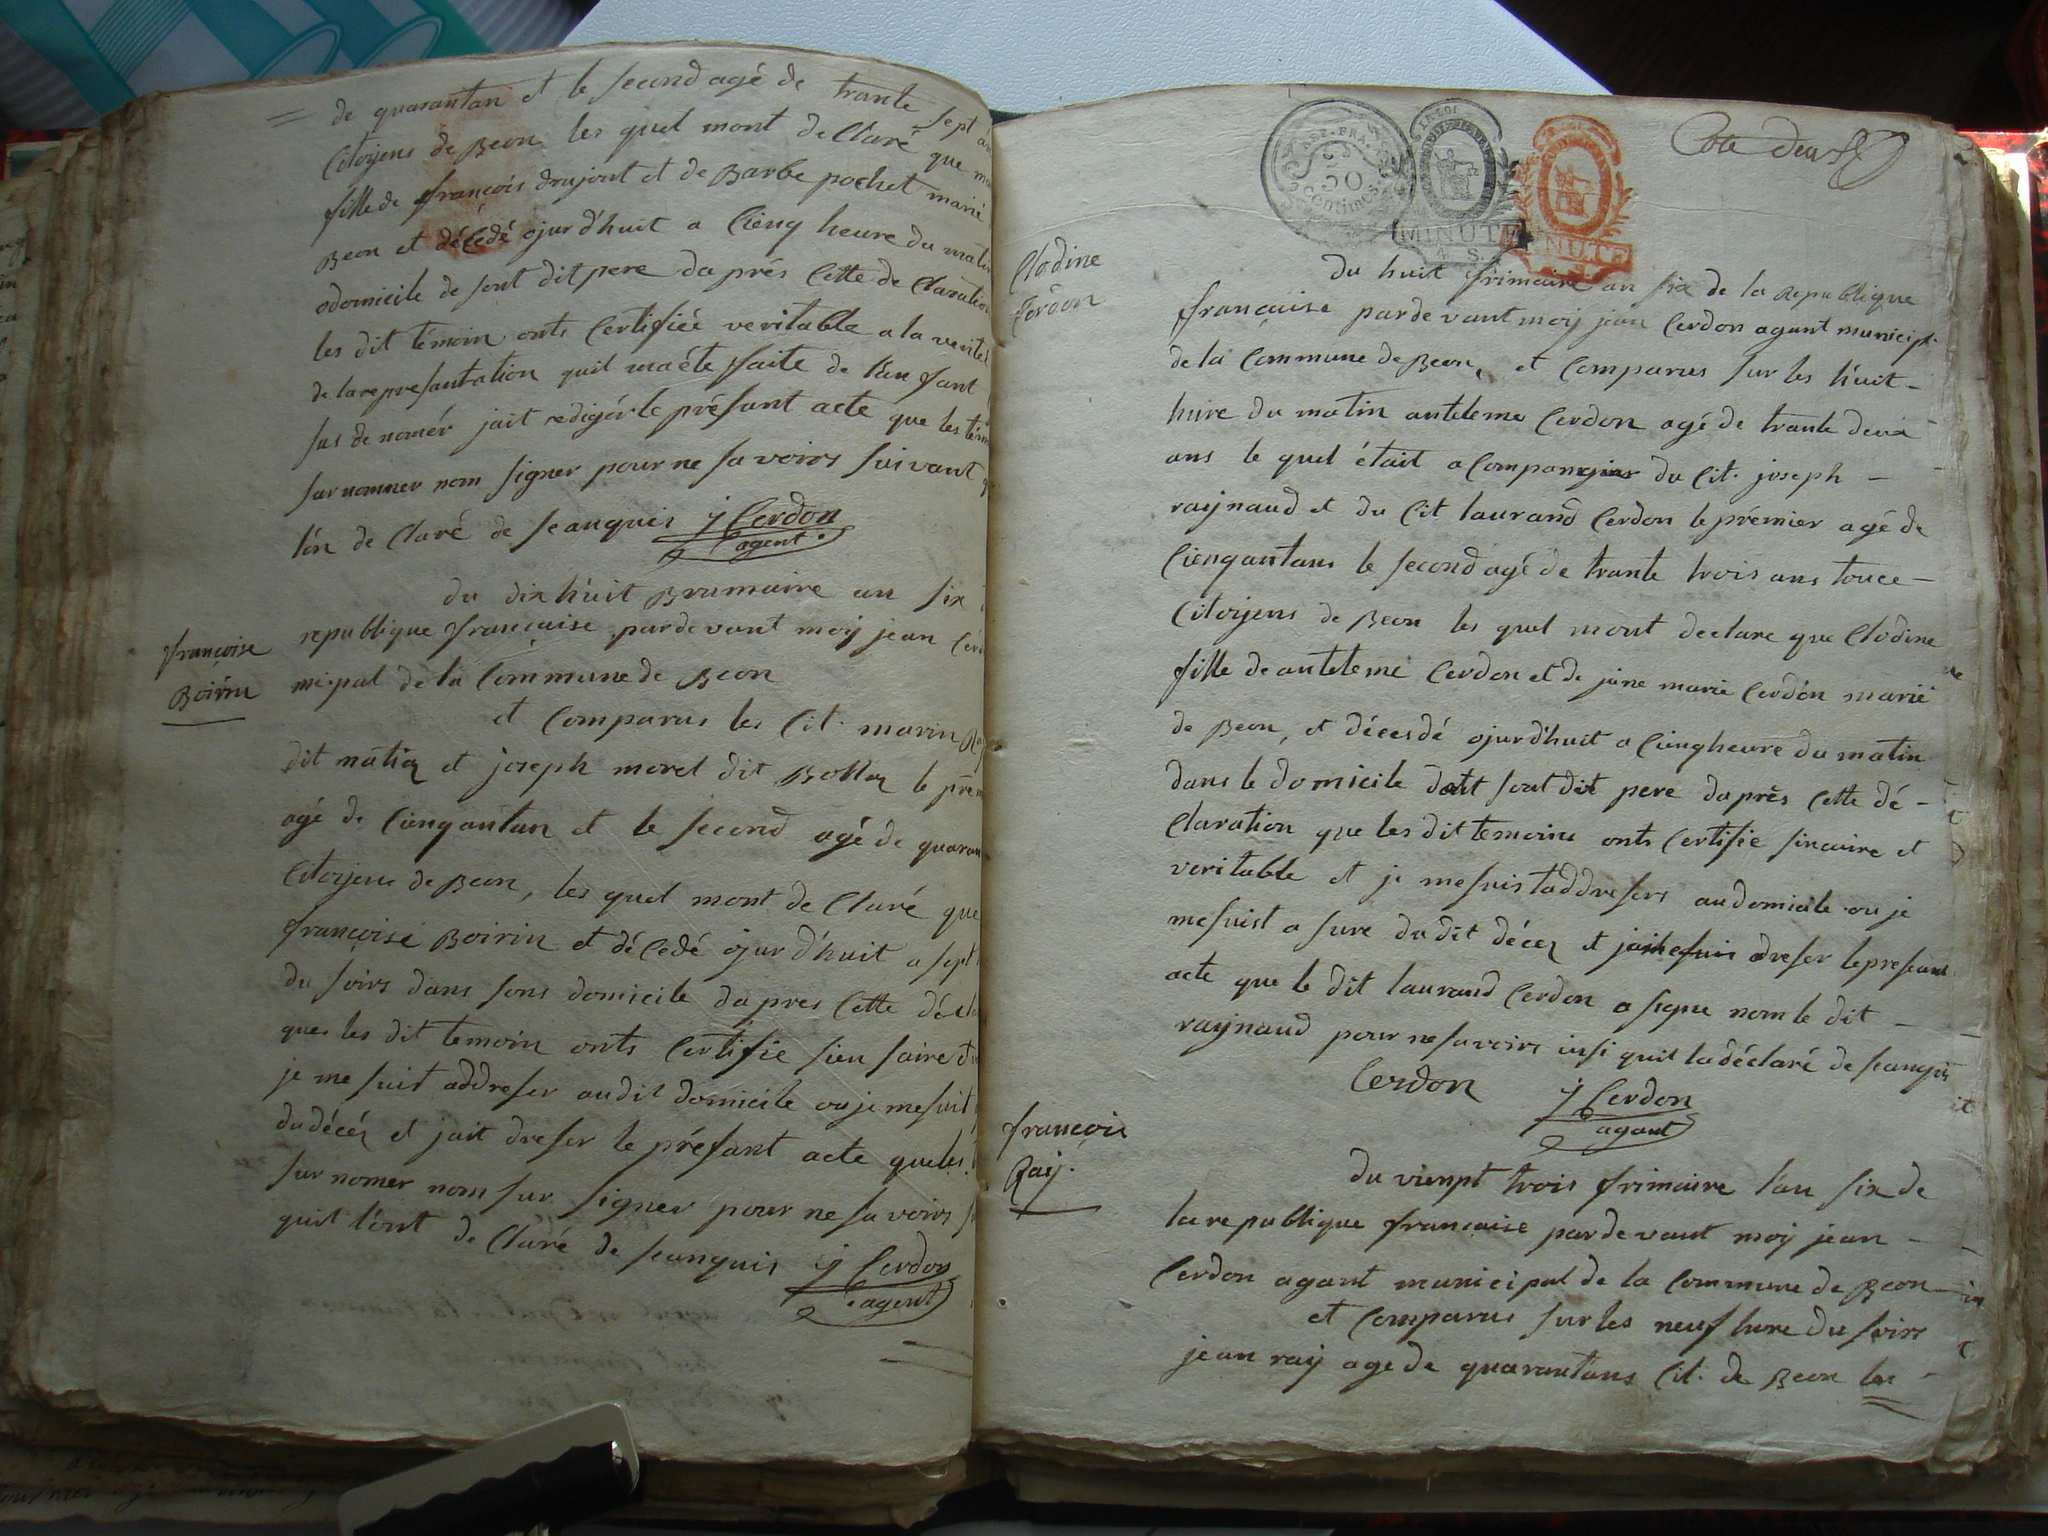 de quarantan et le second agé de trante sept
Citoyens de Beon les quel mont de Claré que
fille de françois drujont et de Barbe pochet marié
Beon et décedé ojurd'huit a Cienq heure du matin
odomicile de sont dit pere daprés Cette de Claration
les dit témoin onts Certifiéé veritable a la verité
de la represantation quil ma éte ffaite de lan fant
sus de nomér jait redigér le présant acte que les
sur nommer nom signer pour ne sa voirs suivant
lön de Claré de seanquis j Cerdon
agent
du dix huit Brumaire an six
republique française pardevant moÿ jean
françoise
Boirin
mi-pal de la Commune de Beon
et Comparus les Cit. marin
dit matia et joseph morel dit le
agé de Cienqantan et le second agé de
Citoyens de Beon, les quel mont de Claré que
françoise Boirin et décedé ojurd'huit a sept
du soirs dans sons domicile dapres Cette
ques les dit temoin onts Certifie sien saire
je me suit addreser audit domicile ou je me suit
du décéz et jait dreser le présant acte que les
sur nomer nom sur signer pour ne sa voirs
quit lönt de Claré de seanquis j Cerdon
agent
Cote deux
RÉP. FRA.
50
Centimes
MINUTE
MINUTE
Clodine
Cerdon
du huit frimaire an six de la Republique
française pardevant moÿ jean Cerdon agant municip.
de la Commune de Beon, et Comparus sur les huit -
hure du matin anteleme Cerdon agé de trante deux
ans le quel était a Compangier du Cit. joseph -
raynaud et du Cit laurand Cerdon le prémier agé de
Cienqantans le second agé de trante trois ans touce -
Citoyens de Beon les quel mont declare que Clodine
fille de anteleme Cerdon et de jâne marie Cerdon marié
de Beon, et décesdé ojurd'huit a Cienqheure du matin
dans le domicile dont sont dit pere daprês Cette dé -
Claration que les dit temoins onts Certifie sincaire et
veritable et je me suis taddresers audomicile ou je
mesuist a sure du dit décez et dreser le presant
acte que le dit laurand Cerdon a signe nom le dit -
raynaud pour ne savoirs insi quit ladéclaré de seanquis
Cerdon j Cerdon
agant
françois
Raÿ.
du vienpt trois frimaire l'an six de
la republique francaise pardevant moÿ jean -
Cerdon agant municipal de la Commune de Beon
et Comparus sur les neuf hure du soirs
jean raÿ age de quarantans Cit. de Beon les